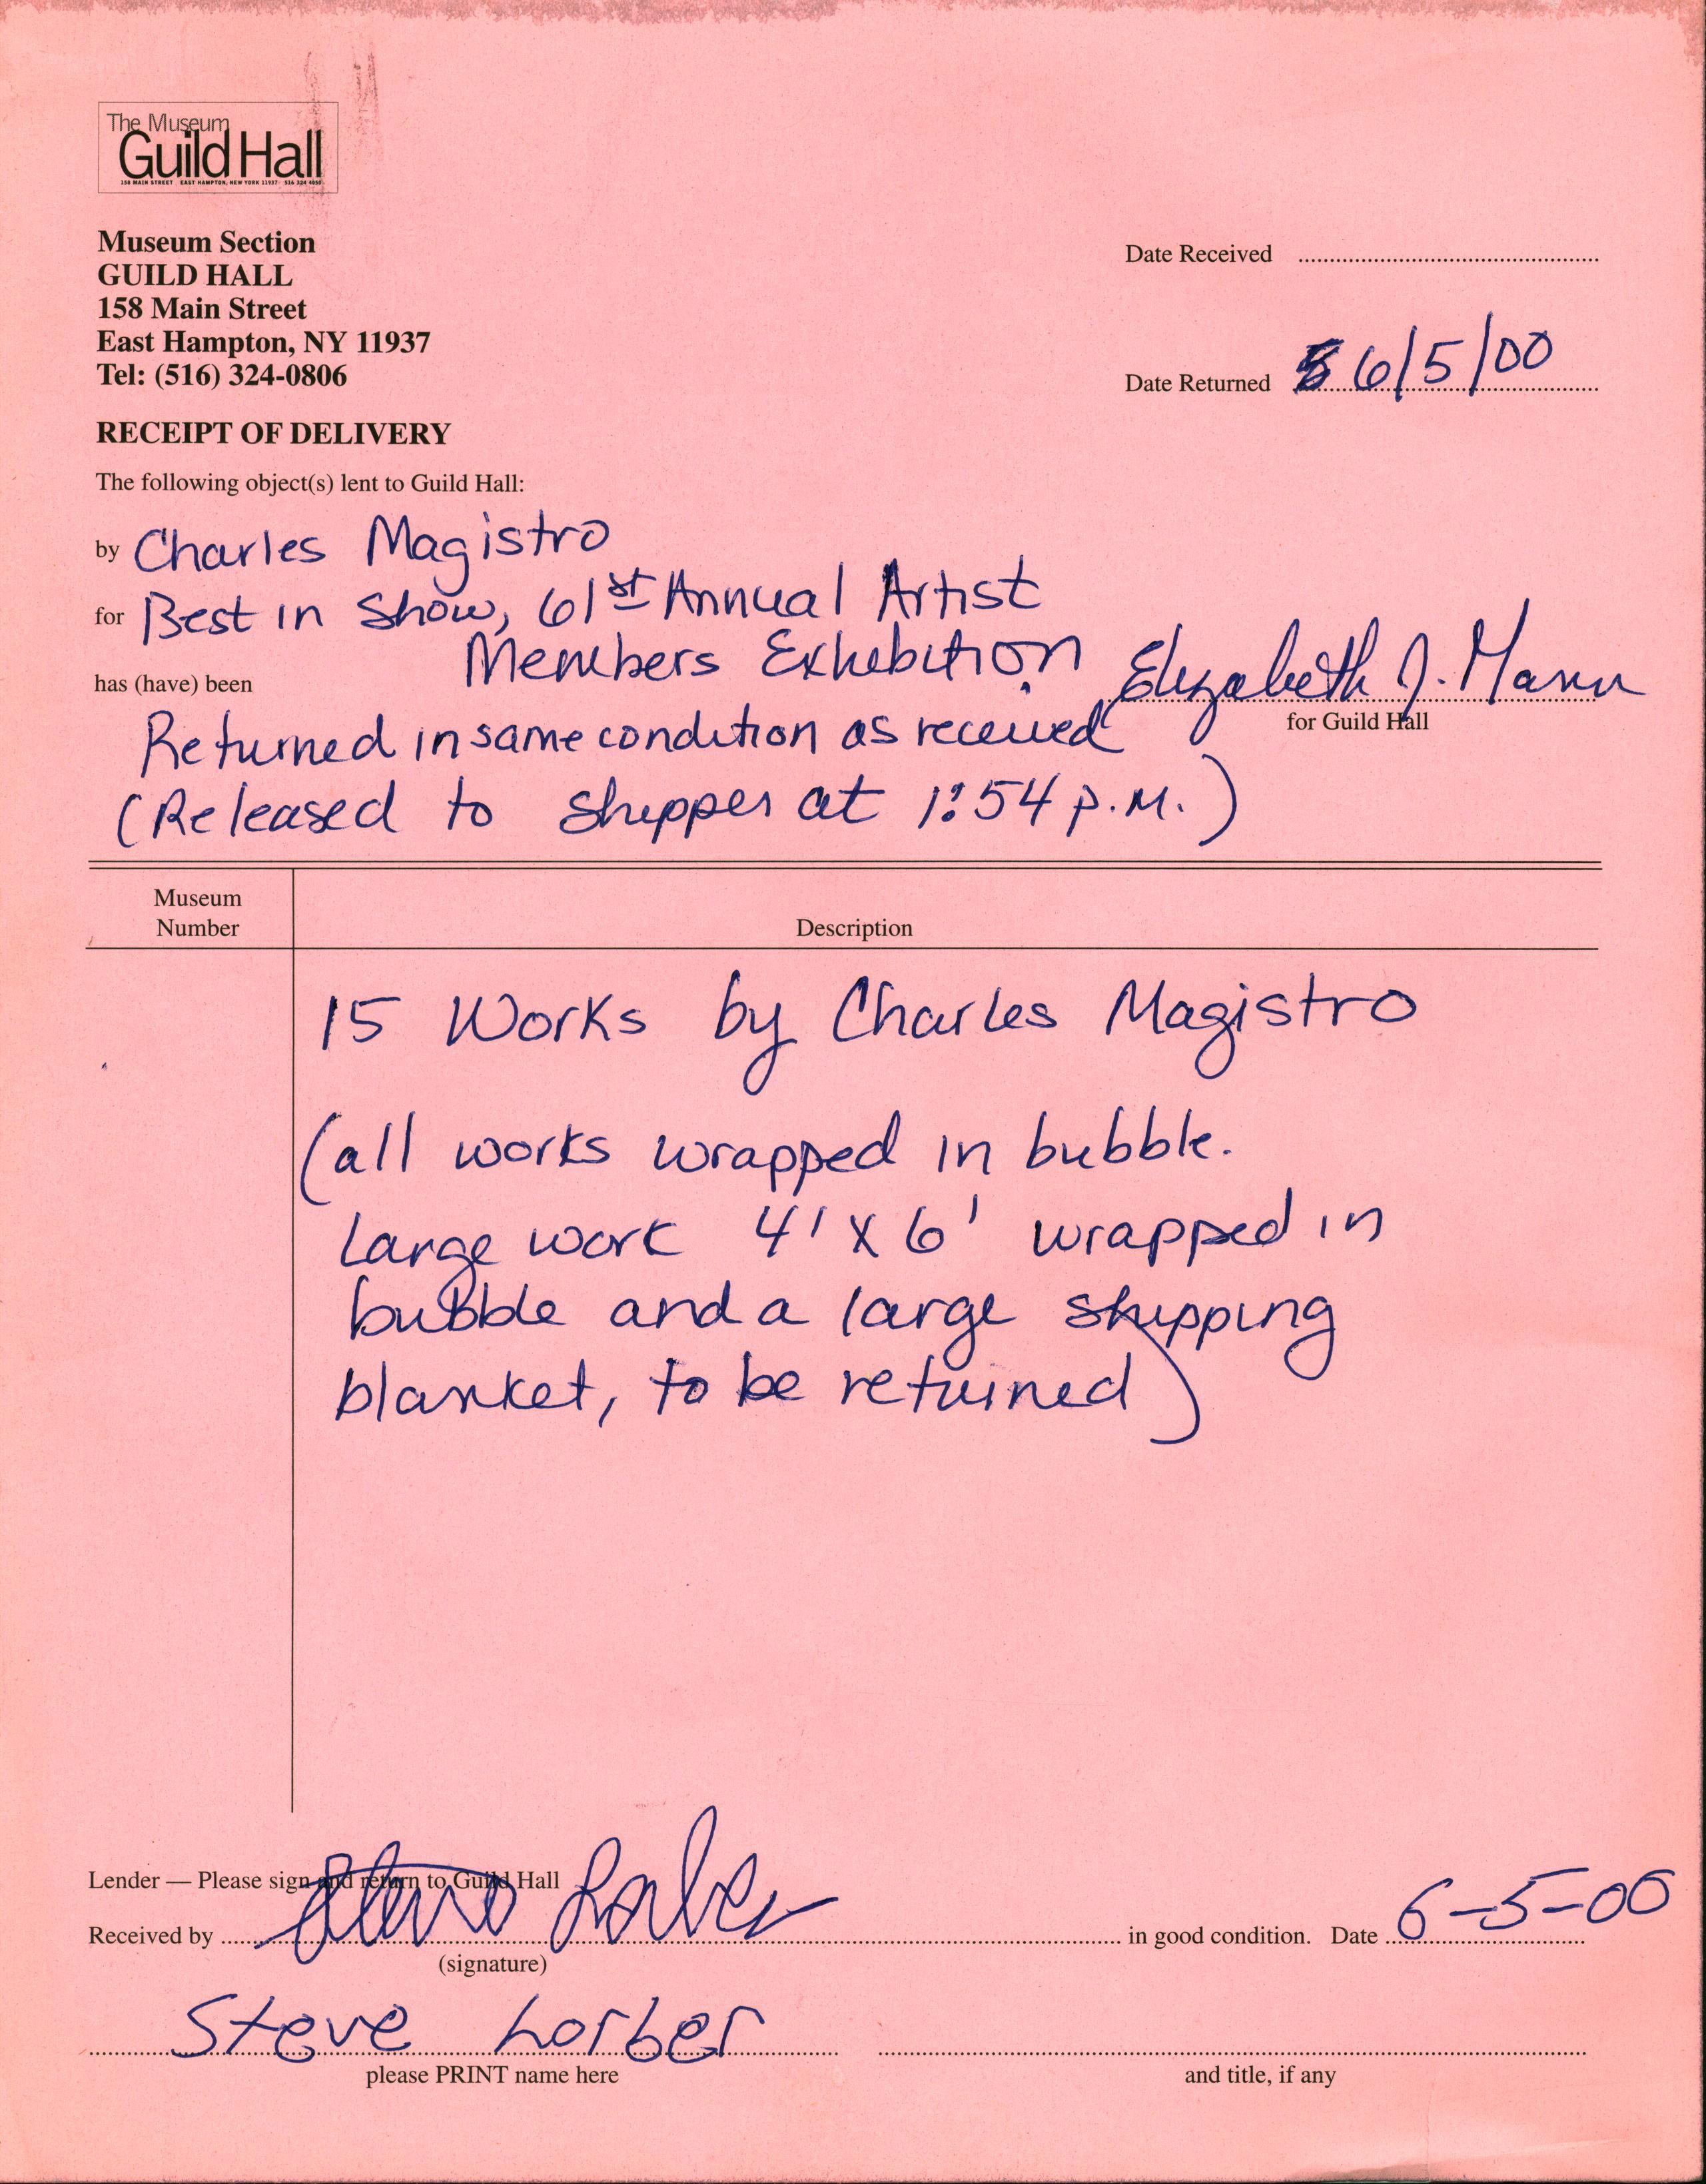 The Museum
Guild Hall
158 MAIN STREET EAST HAMPTON, NEW YORK 11937 516 324 4050
Museum Section
GUILD HALL
158 Main Street
East Hampton, NY 11937
Tel: (516) 324-0806
Date Received
Date Returned 6/5/00
RECEIPT OF DELIVERY
The following object(s) lent to Guild Hall:
by Charles Magistro
for Best in Show, 61st Annual Artist
Members Exhibition
has (have) been
Elizabeth J. Mann
for Guild Hall
Returned in same condition as received
(Released to shipper at 1:54 p.m.)
Museum
Number
Description
15 Works by Charles Magistro
(all works wrapped in bubble.
Large work 4' x 6' wrapped in
bubble and a large shipping
blanket, to be returned)
Lender — Please sign and return to Guild Hall
Received by Steve Lorber in good condition. Date 6-5-00
(signature)
Steve Lorber
please PRINT name here
and title, if any